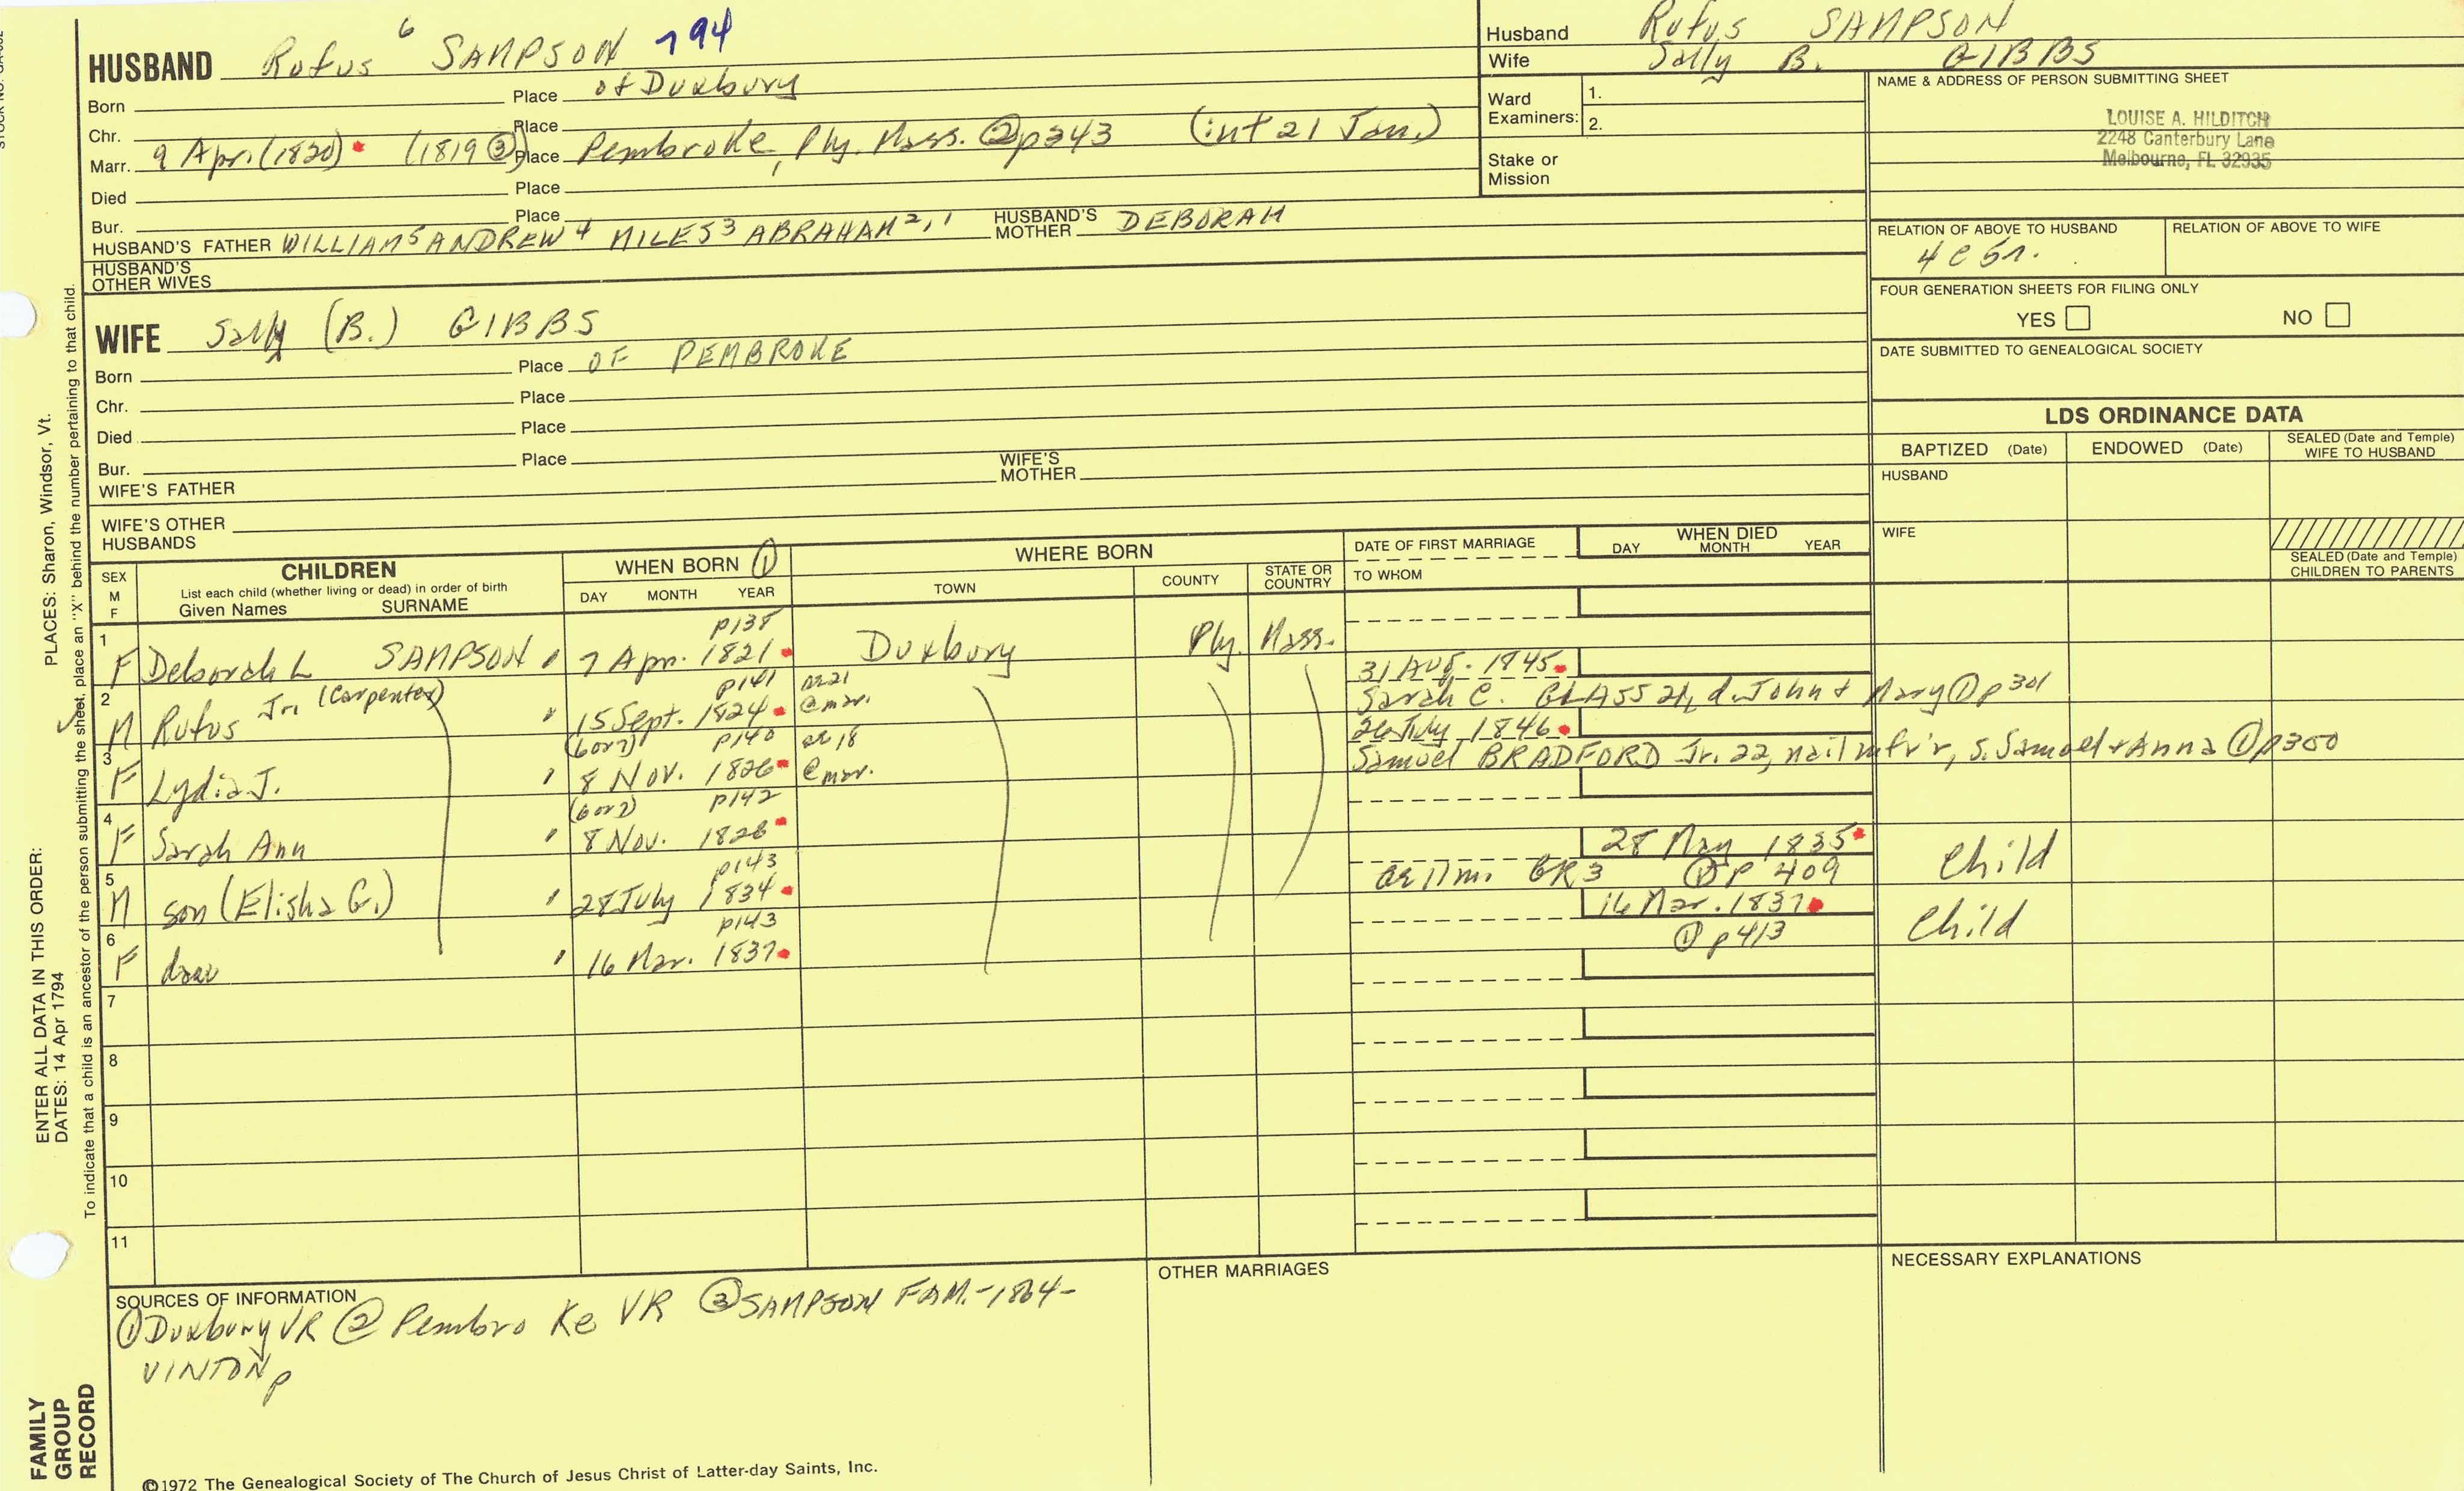 HUSBAND Rufus 6 SAMPSON 794
Born Place of Duxbury
Chr. Place
Marr. 9 April (1820) (1819 ③) Place Pembroke, Ply. Mass. ② p343 (int 21 Jan.)
Died Place
Bur. Place
HUSBAND'S FATHER WILLIAM5 ANDREW4 MILES3 ABRAHAM2,1 HUSBAND'S MOTHER DEBORAH
HUSBAND'S OTHER WIVES
WIFE Sally (B.) GIBBS
Born Place OF PEMBROKE
Chr. Place
Died Place
Bur. Place
WIFE'S FATHER WIFE'S MOTHER
WIFE'S OTHER HUSBANDS
Husband Rufus SAMPSON
Wife Sally B. GIBBS
Ward Examiners: 1.
2.
Stake or Mission
NAME & ADDRESS OF PERSON SUBMITTING SHEET
LOUISE A. HILDITCH
2248 Canterbury Lane
Melbourne, FL 32935
RELATION OF ABOVE TO HUSBAND RELATION OF ABOVE TO WIFE
4 C 5r.
FOUR GENERATION SHEETS FOR FILING ONLY
YES NO
DATE SUBMITTED TO GENEALOGICAL SOCIETY
LDS ORDINANCE DATA
BAPTIZED (Date) ENDOWED (Date) SEALED (Date and Temple) WIFE TO HUSBAND
HUSBAND
WIFE
SEALED (Date and Temple) CHILDREN TO PARENTS
SEX M F
CHILDREN
List each child (whether living or dead) in order of birth
Given Names SURNAME
WHEN BORN ①
DAY MONTH YEAR
WHERE BORN
TOWN COUNTY STATE OR COUNTRY
DATE OF FIRST MARRIAGE
TO WHOM
WHEN DIED
DAY MONTH YEAR
1 F Deborah L SAMPSON " 7 Apr. 1821 p138 Duxbury Ply. Mass.
2 M Rufus Jr. (Carpenter) " 15 Sept. 1824 p141 ae 21 @ mar. 31 AUG. 1845
Sarah C. GLASS 21, d. John + Mary ① p301
3 F Lydia J. " (6 or 7) 8 Nov. 1826 p140 ae 18 @ mar. 26 July 1846
Samuel BRADFORD Jr. 22, nail mfr'r, s. Samuel + Anna ① p300
4 F Sarah Ann " (6 or 7) 8 Nov. 1828 p142
5 M son (Elisha G.) " 28 July 1834 p143 28 May 1835 Child
ae 11 m. GR3 ① p 409
6 F dau " 16 Mar. 1837 p143 16 Mar. 1837 Child
① p413
7
8
9
10
11
SOURCES OF INFORMATION
① Duxbury VR ② Pembroke VR ③ SAMPSON FAM. -1864-
VINTON p
OTHER MARRIAGES
NECESSARY EXPLANATIONS
©1972 The Genealogical Society of The Church of Jesus Christ of Latter-day Saints, Inc.
FAMILY GROUP RECORD
ENTER ALL DATA IN THIS ORDER:
DATES: 14 Apr 1794
PLACES: Sharon, Windsor, Vt.
To indicate that a child is an ancestor of the person submitting the sheet, place an "X" behind the number pertaining to that child.